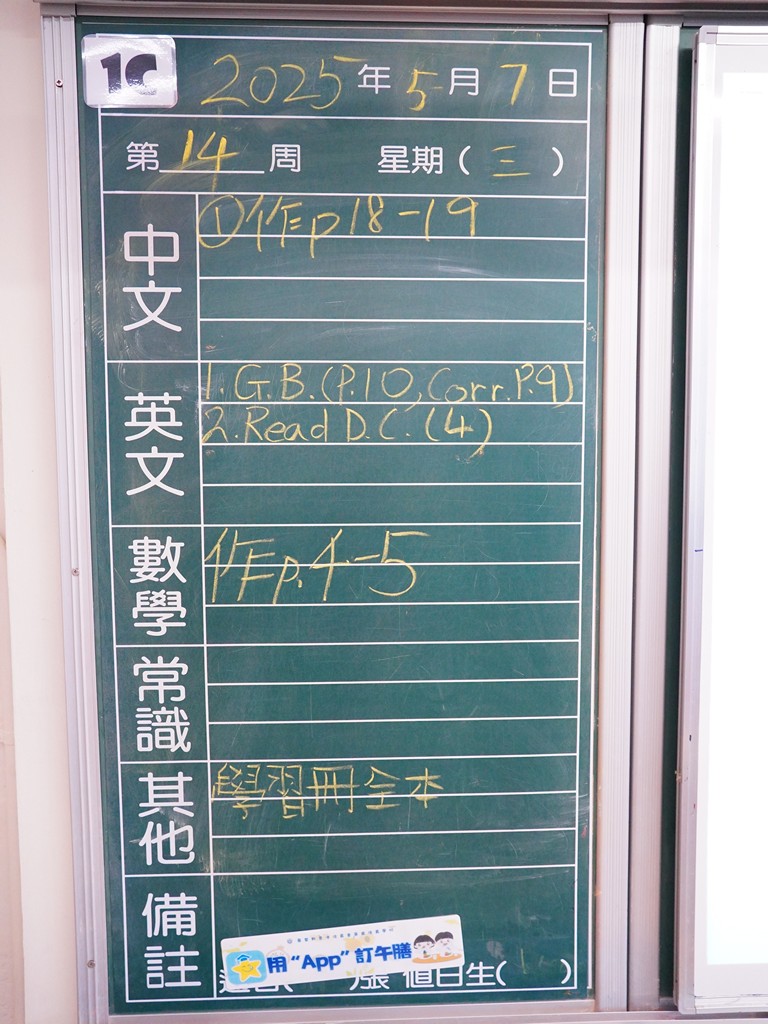 1C
2025年5月7日
第14周 星期(三)
中文
①作p18-19
英文
1.G.B.(P.10,Corr.P.9)
2.Read D.C.(4)
數學
作p.4-5
常識
其他
學習冊全本
備註
用“App”訂午膳
張 值日生( )